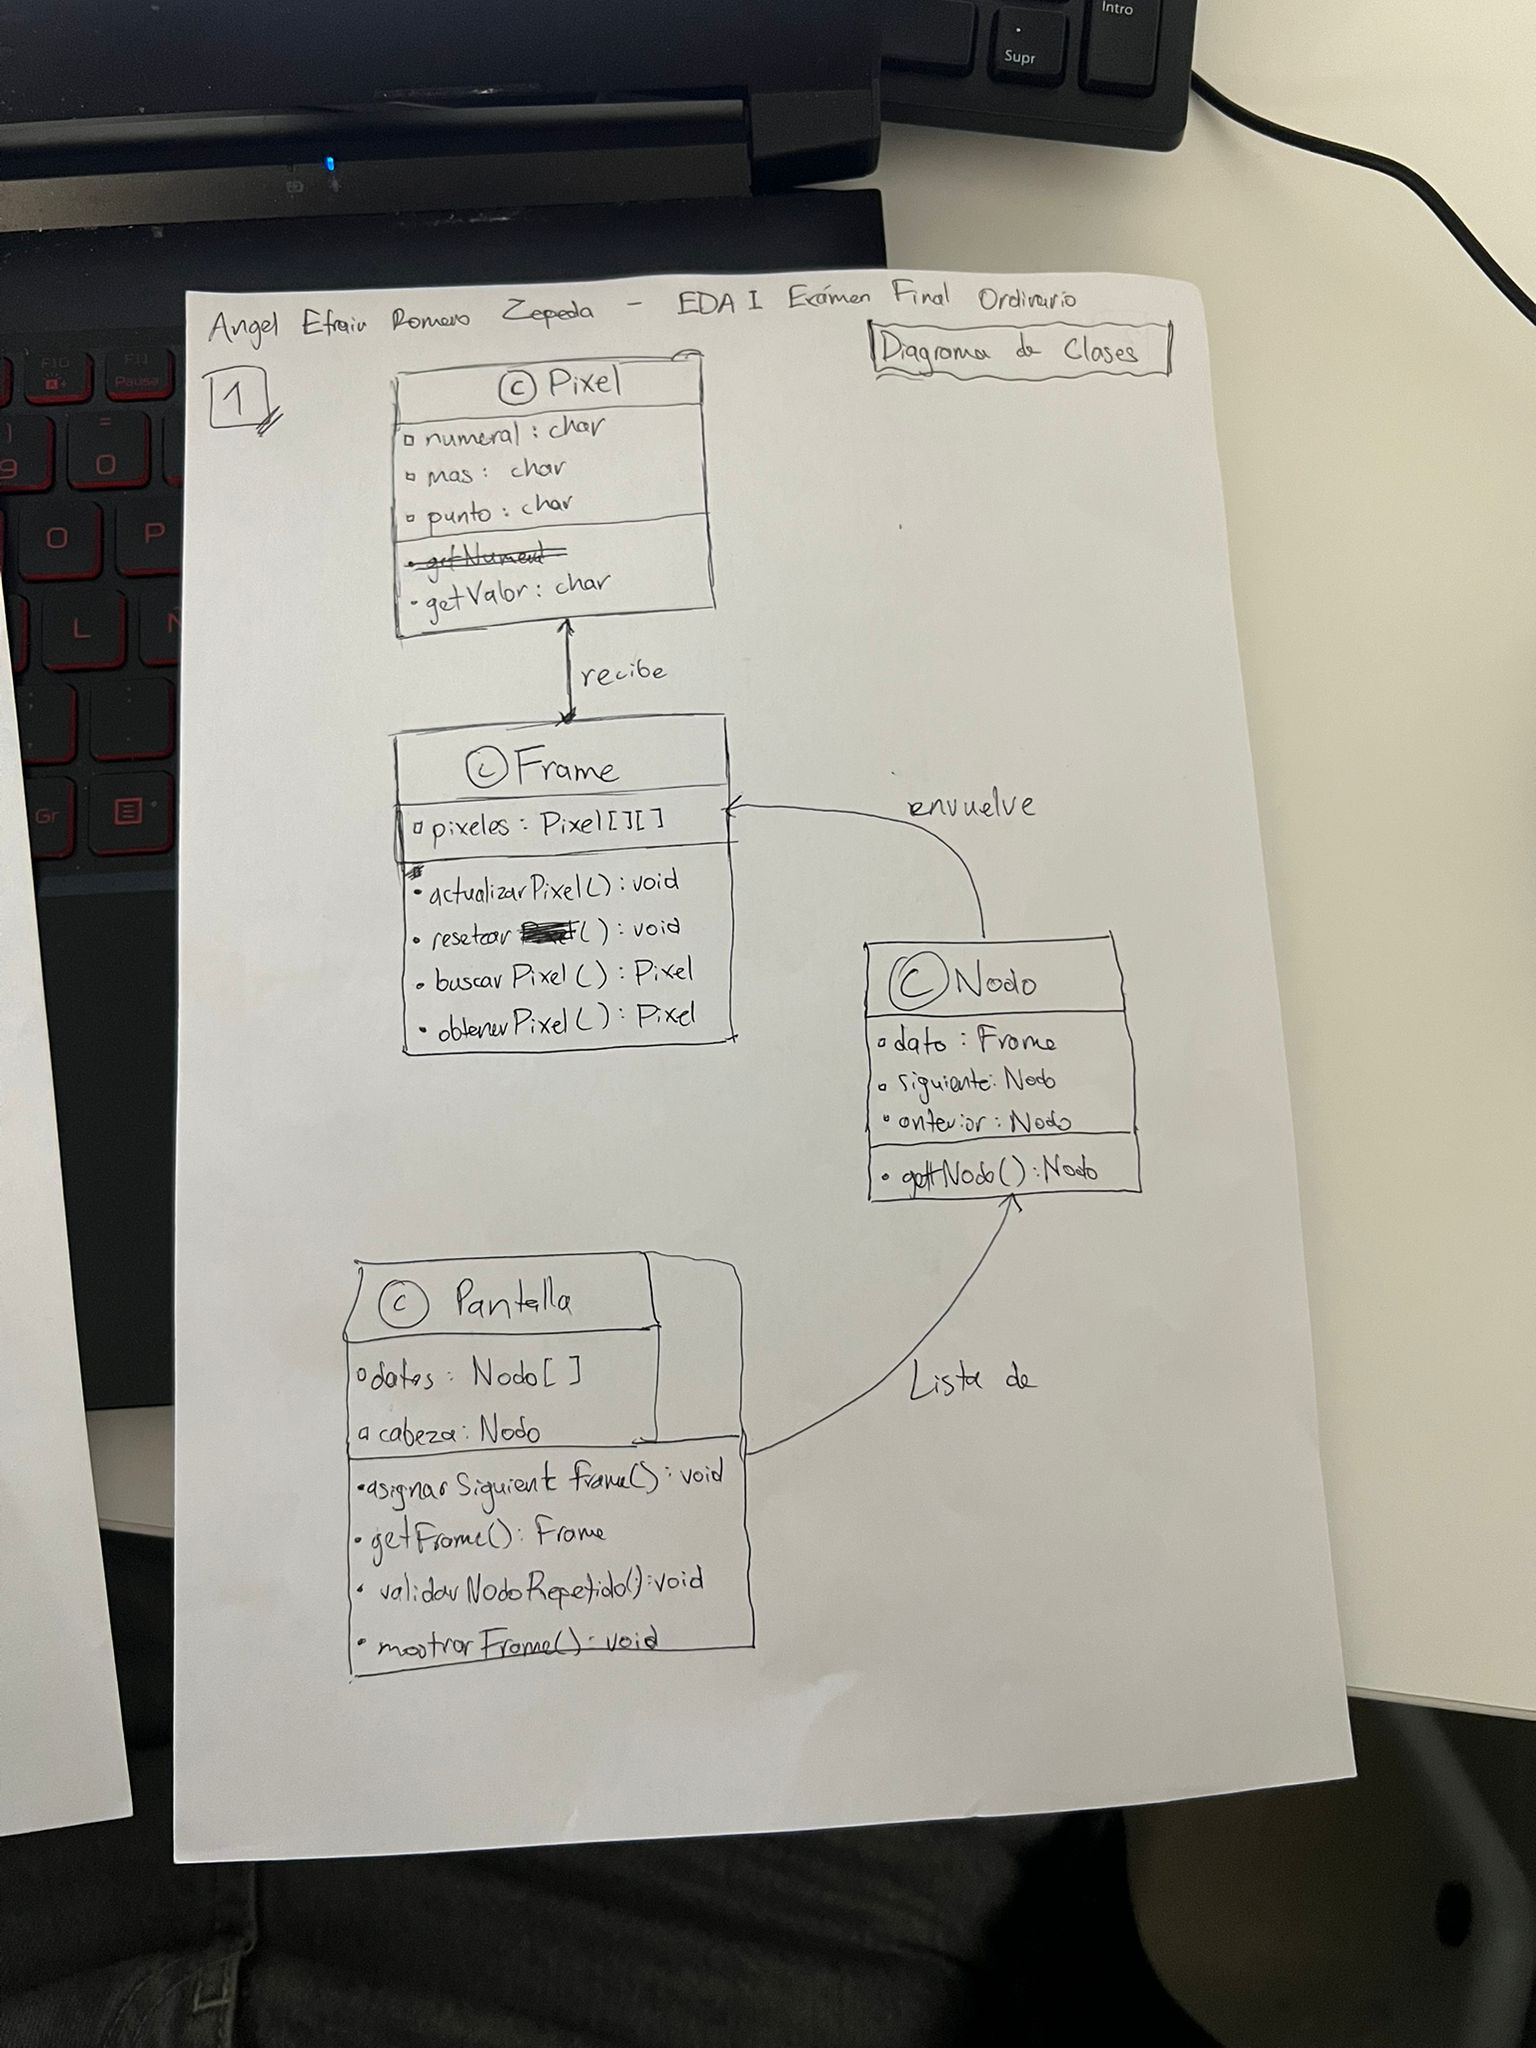 Intro
Supr
F10
F11
Pausa
=
9
0
O
P
L
Gr
Angel Efrain Romero Zepeda - EDA I Exámen Final Ordinario
Diagrama de Clases
1
C Pixel
numeral : char
mas : char
punto : char
getValor : char
recibe
C Frame
pixeles : Pixel[][]
actualizarPixel() : void
resetear () : void
buscar Pixel () : Pixel
obtener Pixel() : Pixel
envuelve
C Nodo
dato : Frame
siguiente: Nodo
anterior : Nodo
getNodo() : Nodo
C Pantalla
datos : Nodo[ ]
cabeza : Nodo
asignar Siguiente Frame() : void
getFrame() : Frame
validarNodoRepetido() : void
mostrar Frame() : void
Lista de